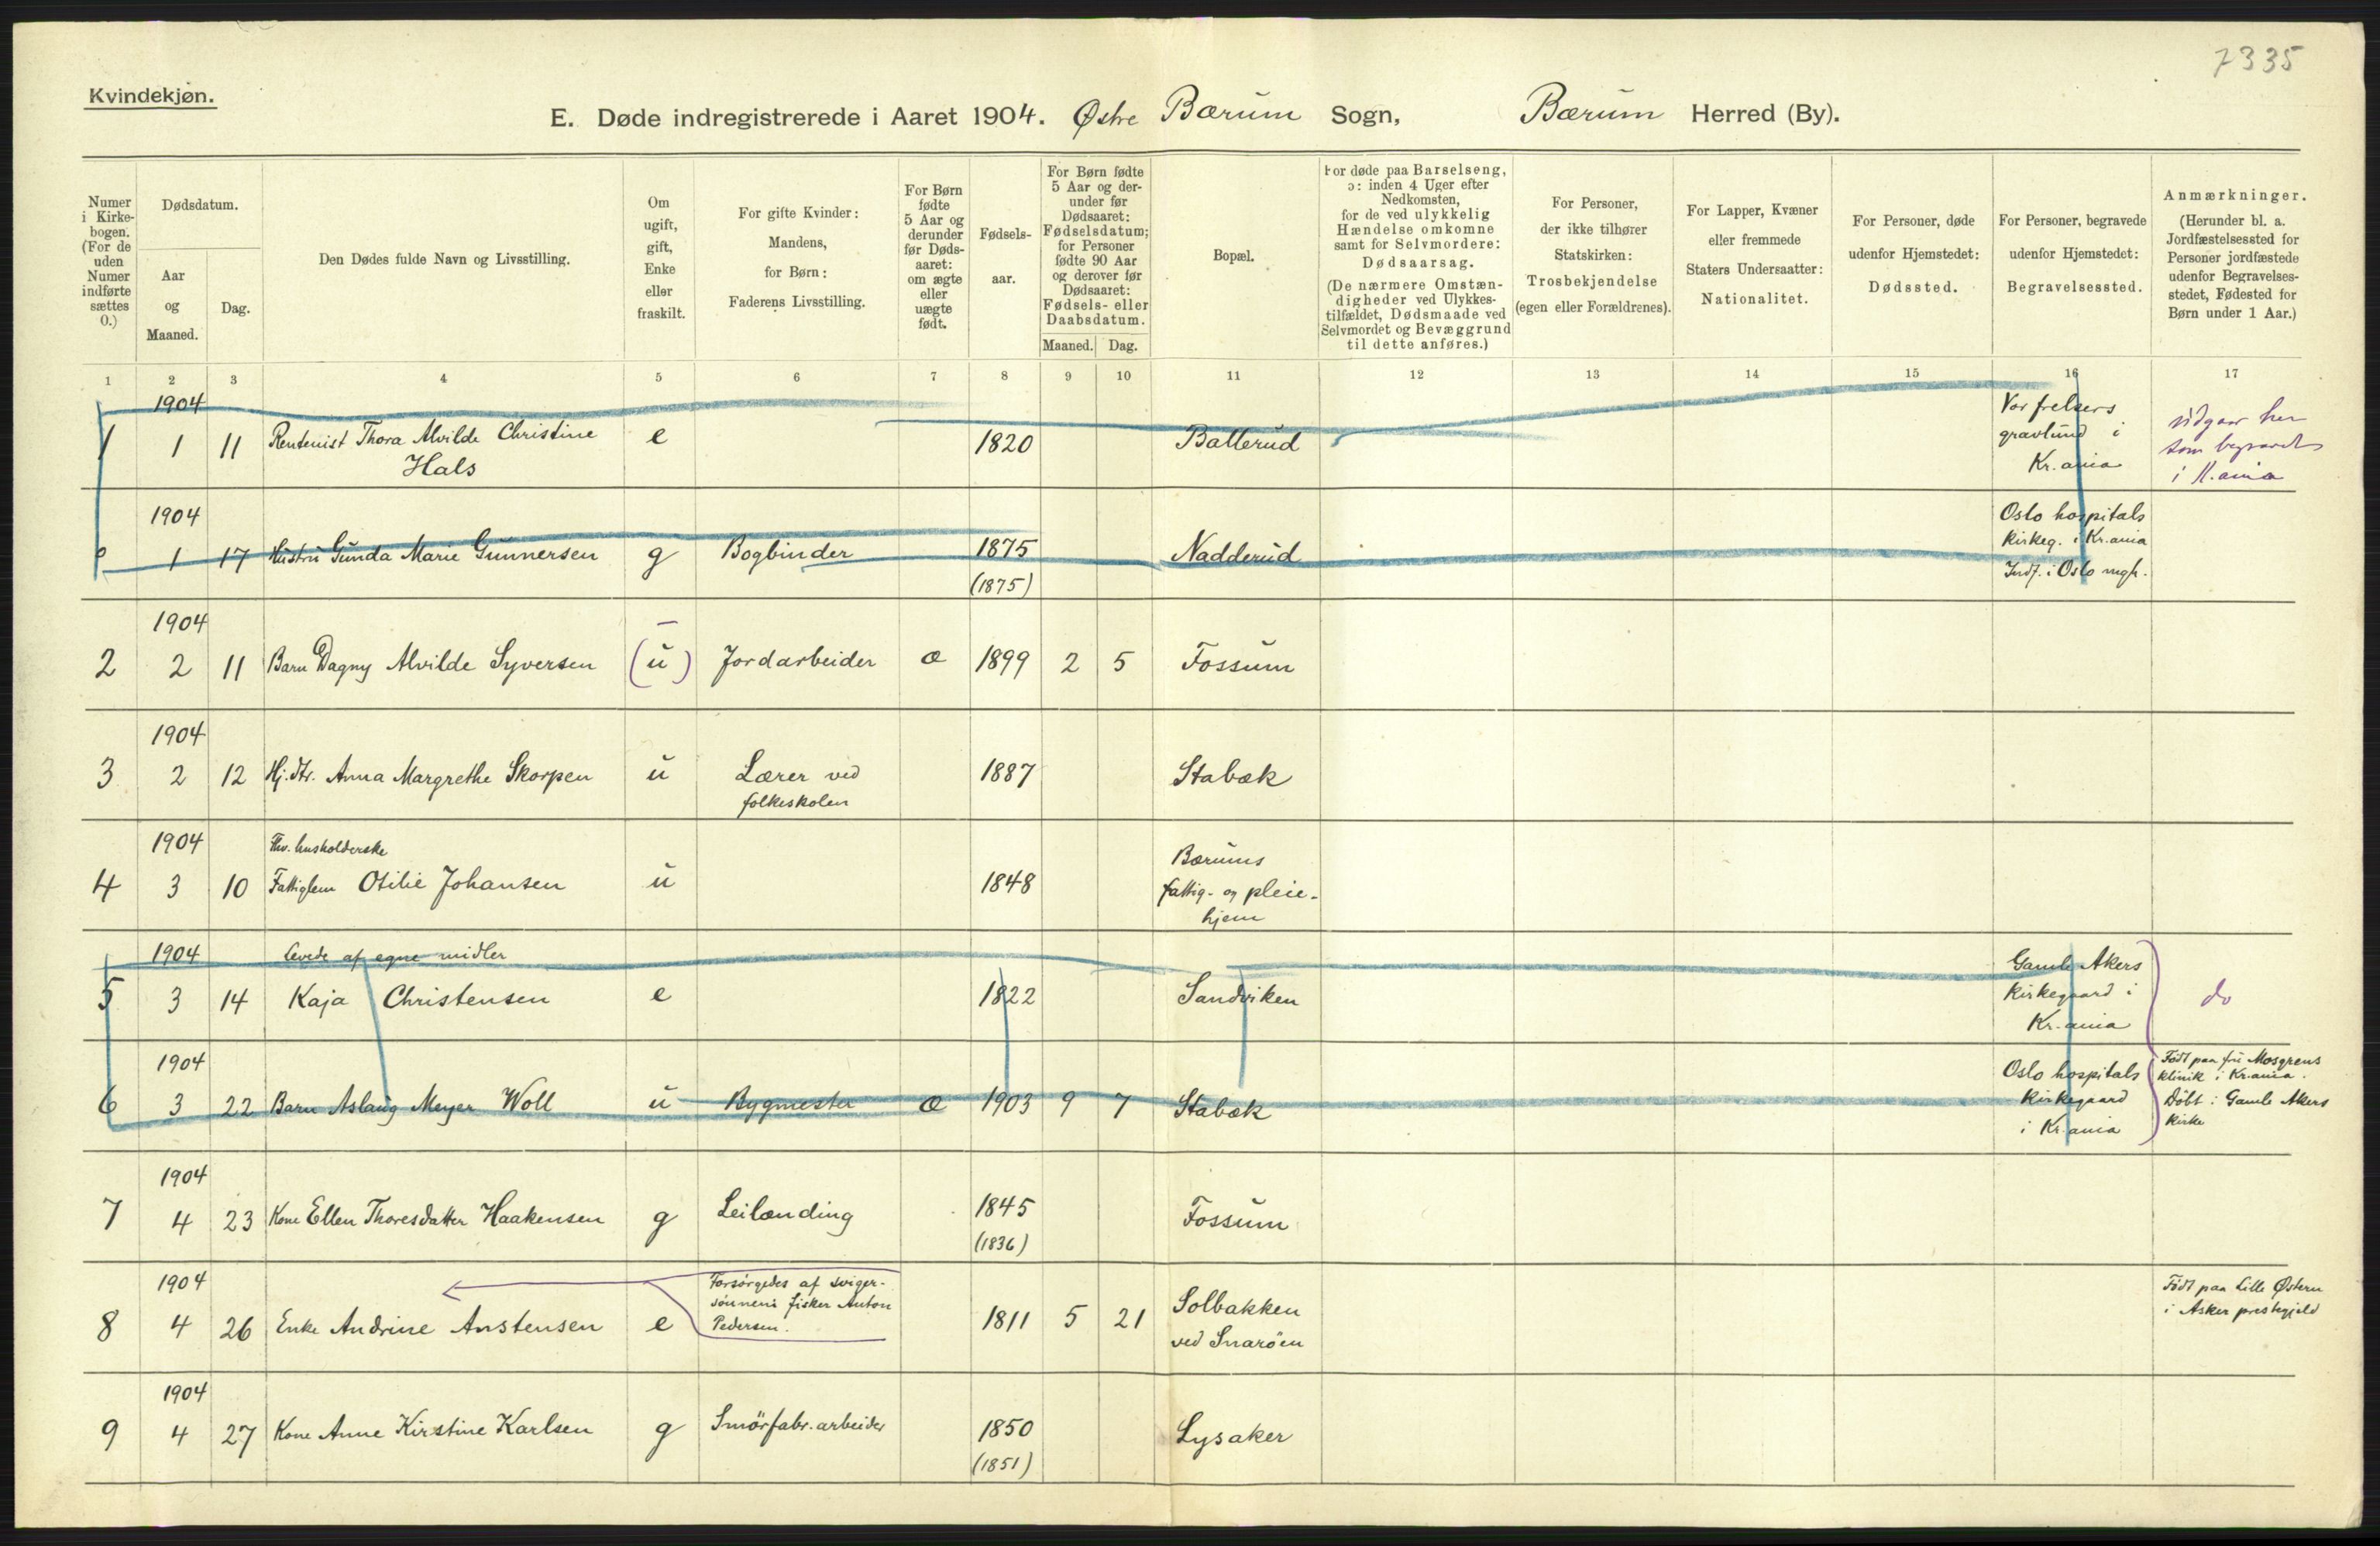 7335
Kvindekjøn.
E. Døde indregistrerede i Aaret 1904. Østre Bærum Sogn, Bærum Herred (By).
Numer i Kirkebogen. (For de uden Numer indførte sættes 0.)
Dødsdatum.
Aar og Maaned.
Dag.
Den Dødes fulde Navn og Livsstilling.
Om ugift, gift, Enke eller fraskilt.
For gifte Kvinder: Mandens, for Børn: Faderens Livsstilling.
For Børn fødte 5 Aar og derunder før Dødsaaret: om ægte eller uægte født.
Fødselsaar.
For Børn fødte 5 Aar og derunder før Dødsaaret: Fødselsdatum; for Personer fødte 90 Aar og derover før Dødsaaret: Fødsels- eller Daabsdatum.
Maaned. Dag.
Bopæl.
For døde paa Barselseng, ɔ: inden 4 Uger efter Nedkomsten, for de ved ulykkelig Hændelse omkomne samt for Selvmordere: Dødsaarsag. (De nærmere Omstændigheder ved Ulykkestilfældet, Dødsmaade ved Selvmordet og Bevæggrund til dette anføres.)
For Personer, der ikke tilhører Statskirken: Trosbekjendelse (egen eller Forældrenes).
For Lapper, Kvæner eller fremmede Staters Undersaatter: Nationalitet.
For Personer, døde udenfor Hjemstedet: Dødssted.
For Personer, begravede udenfor Hjemstedet: Begravelsessted.
Anmærkninger. (Herunder bl. a. Jordfæstelsessted for Personer jordfæstede udenfor Begravelsesstedet, Fødested for Børn under 1 Aar.)
1 2 3 4 5 6 7 8 9 10 11 12 13 14 15 16 17
1904
1 1 11 Rentenist Thora Alvilde Christine Hals e 1820 Ballerud Vor frelsers gravlund i Kr.ania udgaar her som begravet i K.ania
1904
1 17 Hustru Gunda Marie Gunnersen g Bogbinder 1875 (1875) Nadderud Oslo hospitals kirkeg. i Kr.ania Indf. i Oslo mgh.
1904
2 2 11 Barn Dagny Alvilde Syversen (u) Jordarbeider æ 1899 2 5 Fossum
1904
3 2 12 Hj.dtr. Anna Margrethe Skorpen u Lærer ved folkeskolen 1887 Stabæk
1904
Fhv. husholderske
4 3 10 Fattiglem Otilie Johansen u 1848 Bærums fattig- og pleiehjem
1904
levede af egne midler
5 3 14 Kaja Christensen e 1822 Sandviken Gamle Akers kirkegaard i Kr.ania do
1904
6 3 22 Barn Aslaug Meyer Woll u Bygmester æ 1903 9 7 Stabæk Oslo hospitals kirkegaard i Kr.ania Født paa fru Mosgrens klinik i Kr.ania. Döbt i Gamle Akers kirke
1904
7 4 23 Kone Ellen Thoresdatter Haakensen g Leilænding 1845 (1836) Fossum
1904
8 4 26 Enke Andrine Anstensen e Forsörgedes af svigersönnen: fisker Anton Pedersen. 1811 5 21 Solbakken ved Snaröen Födt paa Lille Østern i Asker prestegjeld
1904
9 4 27 Kone Anne Kirstine Karlsen g Smörfabr.arbeider 1850 (1851) Lysaker